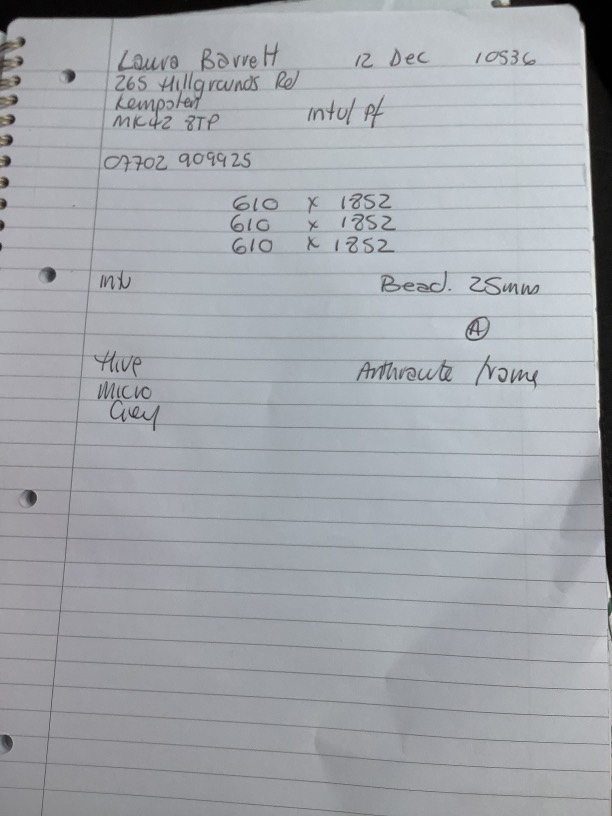 Laura Barrett 12 Dec 10536
265 Hillgrounds Rd
Kempston
MK42 8TP intu/ pf
07702 909925
610 x 1852
610 x 1852
610 x 1852
intu Bead. 25mm
A
Hive Anthracite frame
Micro
Grey